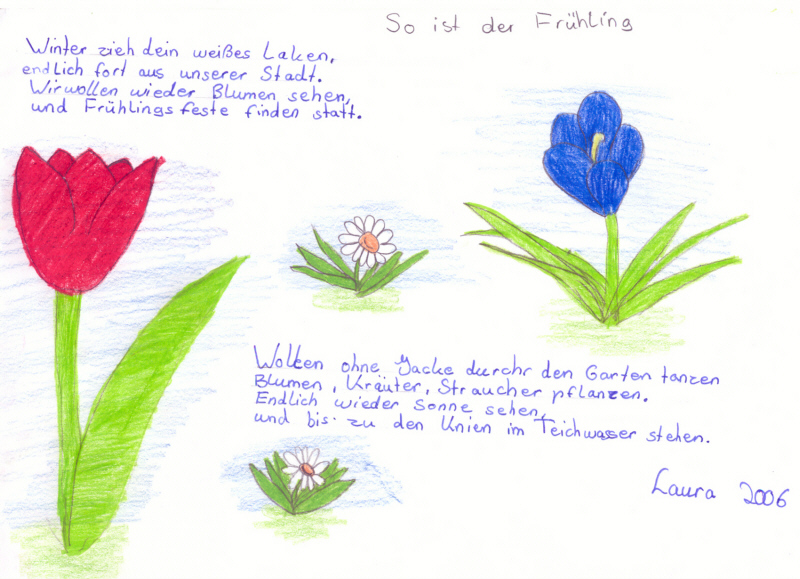 So ist der Frühling
Winter zieh dein weißes Laken,
endlich fort aus unserer Stadt.
Wir wollen wieder Blumen sehen,
und Frühlingsfeste finden statt.
Wollen ohne Jacke durchr den Garten tanzen
Blumen, Kräuter, Straucher pflanzen.
Endlich wieder Sonne sehen,
und bis zu den Knien im Teichwasser stehen.
Laura 2006